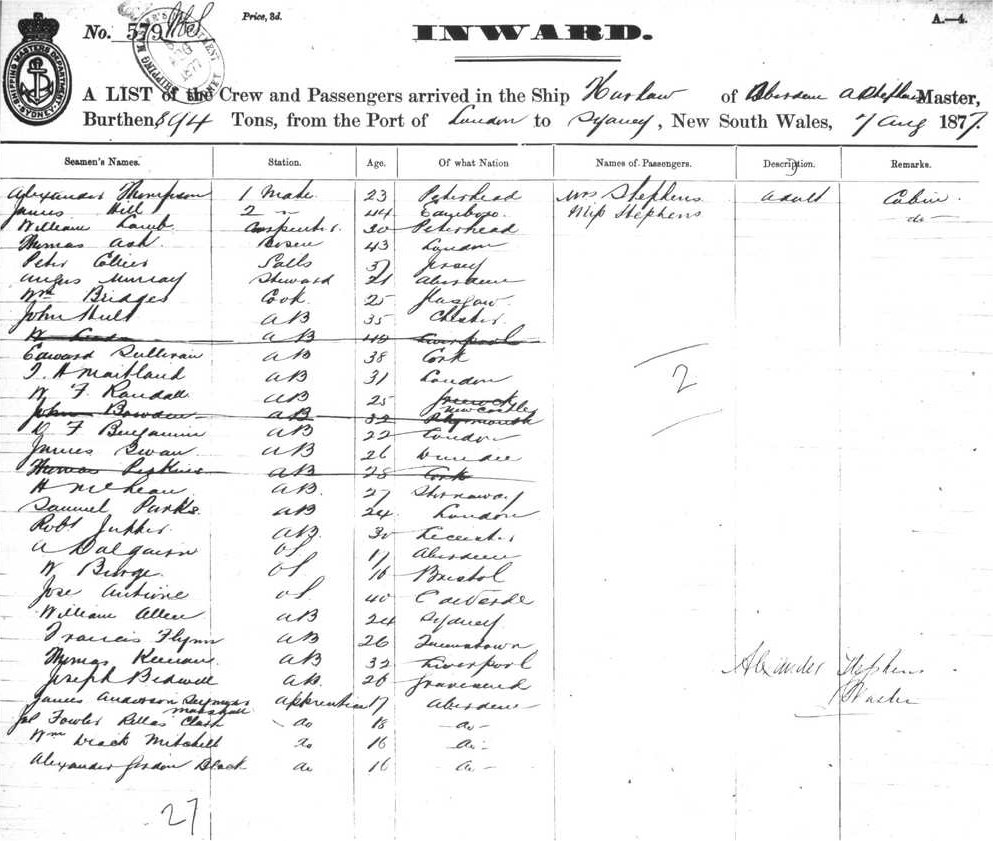 No. 579
Price, 3d.
INWARD.
A.—4.
SHIPPING MASTERS DEPARTMENT SYDNEY
A LIST of the Crew and Passengers arrived in the Ship Harlaw of Aberdeen A Stephens Master,
Burthen 894 Tons, from the Port of London to Sydney, New South Wales, 7 Aug 1877.
Seamen's Names. Station. Age. Of what Nation Names of Passengers. Description. Remarks.
Alexander Thompson 1 Mate 23 Peterhead Mrs Stephens Adult Cabin
James Hill 2 " 44 Miss Stephens do
William Lamb Carpenter 30 Peterhead
Thomas Ash Bosun 43 London
Peter Sails 37 Jersey
Angus Murray Steward 21 Aberdeen
Wm Bridges Cook 25 Glasgow
John Hult AB 35 Chester
W AB 40 Liverpool
Edward Sullivan AB 38 Cork
T. H Maitland AB 31 London
W F Randall AB 25 Greenock Newcastle
John Bowden AB 32 Plymouth
D F Benjamin AB 22 London
James Swan AB 26 Dundee
Thomas Perkins AB 28 Cork
H McLean AB 27 Stornaway
Samuel Parks AB 24 London
Robt AB 30 Leicester
A Dalgairn OS 17 Aberdeen
W Burge OS 16 Bristol
Jose Antoine OS 40
William Allen AB 24 Sydney
Francis Flynn AB 26 Queenstown
Thomas Keenan AB 32 Liverpool
Joseph Bidwell AB 26 Gravesend
James Anderson Marshall Apprentice 17 Aberdeen
Fowler Clark do 18 do
Wm Mitchell do 16 do
Alexander Gordon Black do 16 do
2
Alexander Stephens
Master
27